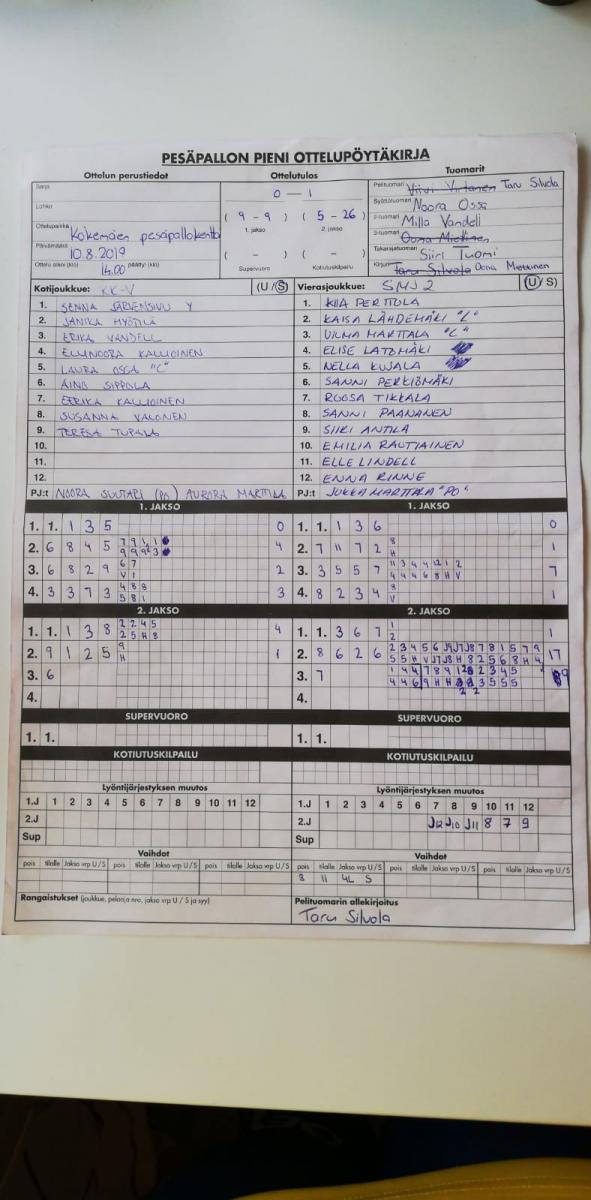 PESÄPALLON PIENI OTTELUPÖYTÄKIRJA
Ottelun perustiedot Ottelutulos Tuomarit
Sarja 0 - 1 Pelituomari Viivi Virtanen Taru Silvola
Lohko Syöttötuomari Noora Ossa
Ottelupaikka Kokemäen pesäpallokenttä ( 9 - 9 ) ( 5 - 26 ) 2-tuomari Milla Vandell
1. jakso 2. jakso
Päivämäärä 10.8.2019 3-tuomari Oona Miettinen
( - ) ( - ) Takarajatuomari Siiri Tuomi
Ottelu alkoi (klo) 14.00 päättyi (klo) Supervuoro Kotiutuskilpailu Kirjuri Taru Silvola Oona Miettinen
Kotijoukkue: KK-V (U / S) Vierasjoukkue: SMJ 2 (U / S)
1. SENNA JÄRVENSIVU Y 1. KIIA PERTTULA
2. JANIKA MYÖTILÄ 2. KAISA LÄHDEMÄKI "L"
3. ERIKA VANDELL 3. VILMA MARTTALA "C"
4. ELLINOORA KALLIOINEN 4. ELISE LATOMÄKI
5. LAURA OSSA "C" 5. NELLA KUJALA
6. AINO SIPPOLA 6. SANNI PERKIÖMÄKI
7. EERIKA KALLIOINEN 7. ROOSA TIKKALA
8. SUSANNA VALONEN 8. SANNI PAANANEN
9. TERESA 9. SIIRI ANTILA
10. 10. EMILIA RAUTIAINEN
11. 11. ELLE LINDELL
12. 12. ENNA RINNE
PJ:t NOORA SUUTARI (PO) AURORA MARTTILA PJ:t JUKKA MARTTALA "PO"
1. JAKSO 1. JAKSO
1. 1. 1 3 5 0 1. 1. 1 3 6 0
2. 6 8 4 5 4 2. 7 11 7 2 8 H 1
3. 6 8 2 9 6 7 V 1 2 3. 3 5 5 7 11 3 4 4 12 1 2 7
4 4 4 6 8 H V
4. 3 3 7 3 4 8 8 5 8 1 3 4. 8 2 3 4 8 V 1
2. JAKSO 2. JAKSO
1. 1. 1 3 8 2 2 4 5 4 1. 1. 3 6 7 1 2 1
2 5 H 8
2. 9 1 2 5 9 H 1 2. 8 6 2 6 2 3 4 5 6 J9 J7 J8 7 8 1 5 7 9 17
5 5 H V J7 J8 H 8 2 5 6 8 H 4
3. 6 3. 7 9
4. 4.
SUPERVUORO SUPERVUORO
1. 1. 1. 1.
KOTIUTUSKILPAILU KOTIUTUSKILPAILU
Lyöntijärjestyksen muutos Lyöntijärjestyksen muutos
1.J 1 2 3 4 5 6 7 8 9 10 11 12 1.J 1 2 3 4 5 6 7 8 9 10 11 12
2.J 2.J J12 J10 J11 8 7 9
Sup Sup
Vaihdot Vaihdot
pois tilalle Jakso vrp U / S pois tilalle Jakso vrp U / S pois tilalle Jakso vrp U / S pois tilalle Jakso vrp U / S pois tilalle Jakso vrp U / S pois tilalle Jakso vrp U / S
8 11 4L S
Rangaistukset (joukkue, pelaaja nro, jakso vrp U / S ja syy) Pelituomarin allekirjoitus
Taru Silvola